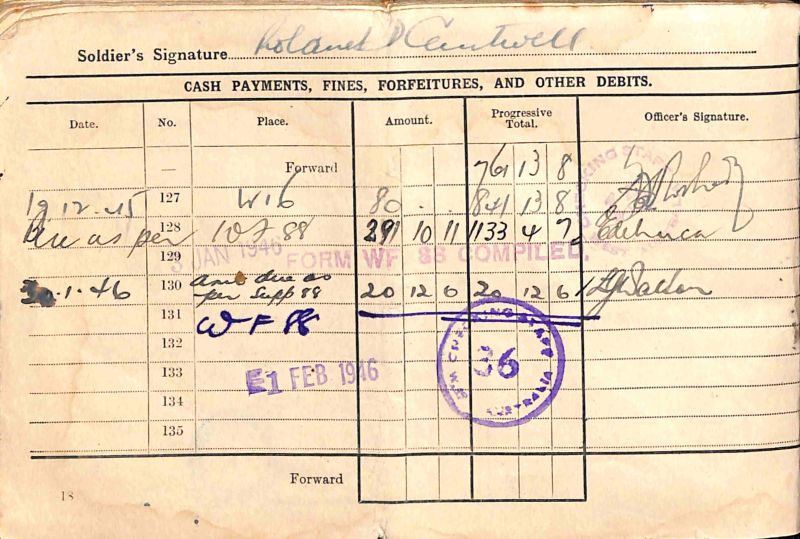 Soldier's Signature Roland D Cantwell
CASH PAYMENTS, FINES, FORFEITURES, AND OTHER DEBITS.
Date. No. Place. Amount. Progressive Total. Officer's Signature.
— Forward 761 13 8
19.12.45 127 W16 80 - 841 13 8
due as per 128 WF 88 291 10 11 1133 4 7
129
3 JAN 1946 FORM WF 88 COMPILED.
30.1.46 130 amt due as per Supp 88 20 12 6 20 12 6
131 WF 88
132
133
1 FEB 1946
134
135
CHECKING STAFF
36
AUSTRALIA
Forward
18